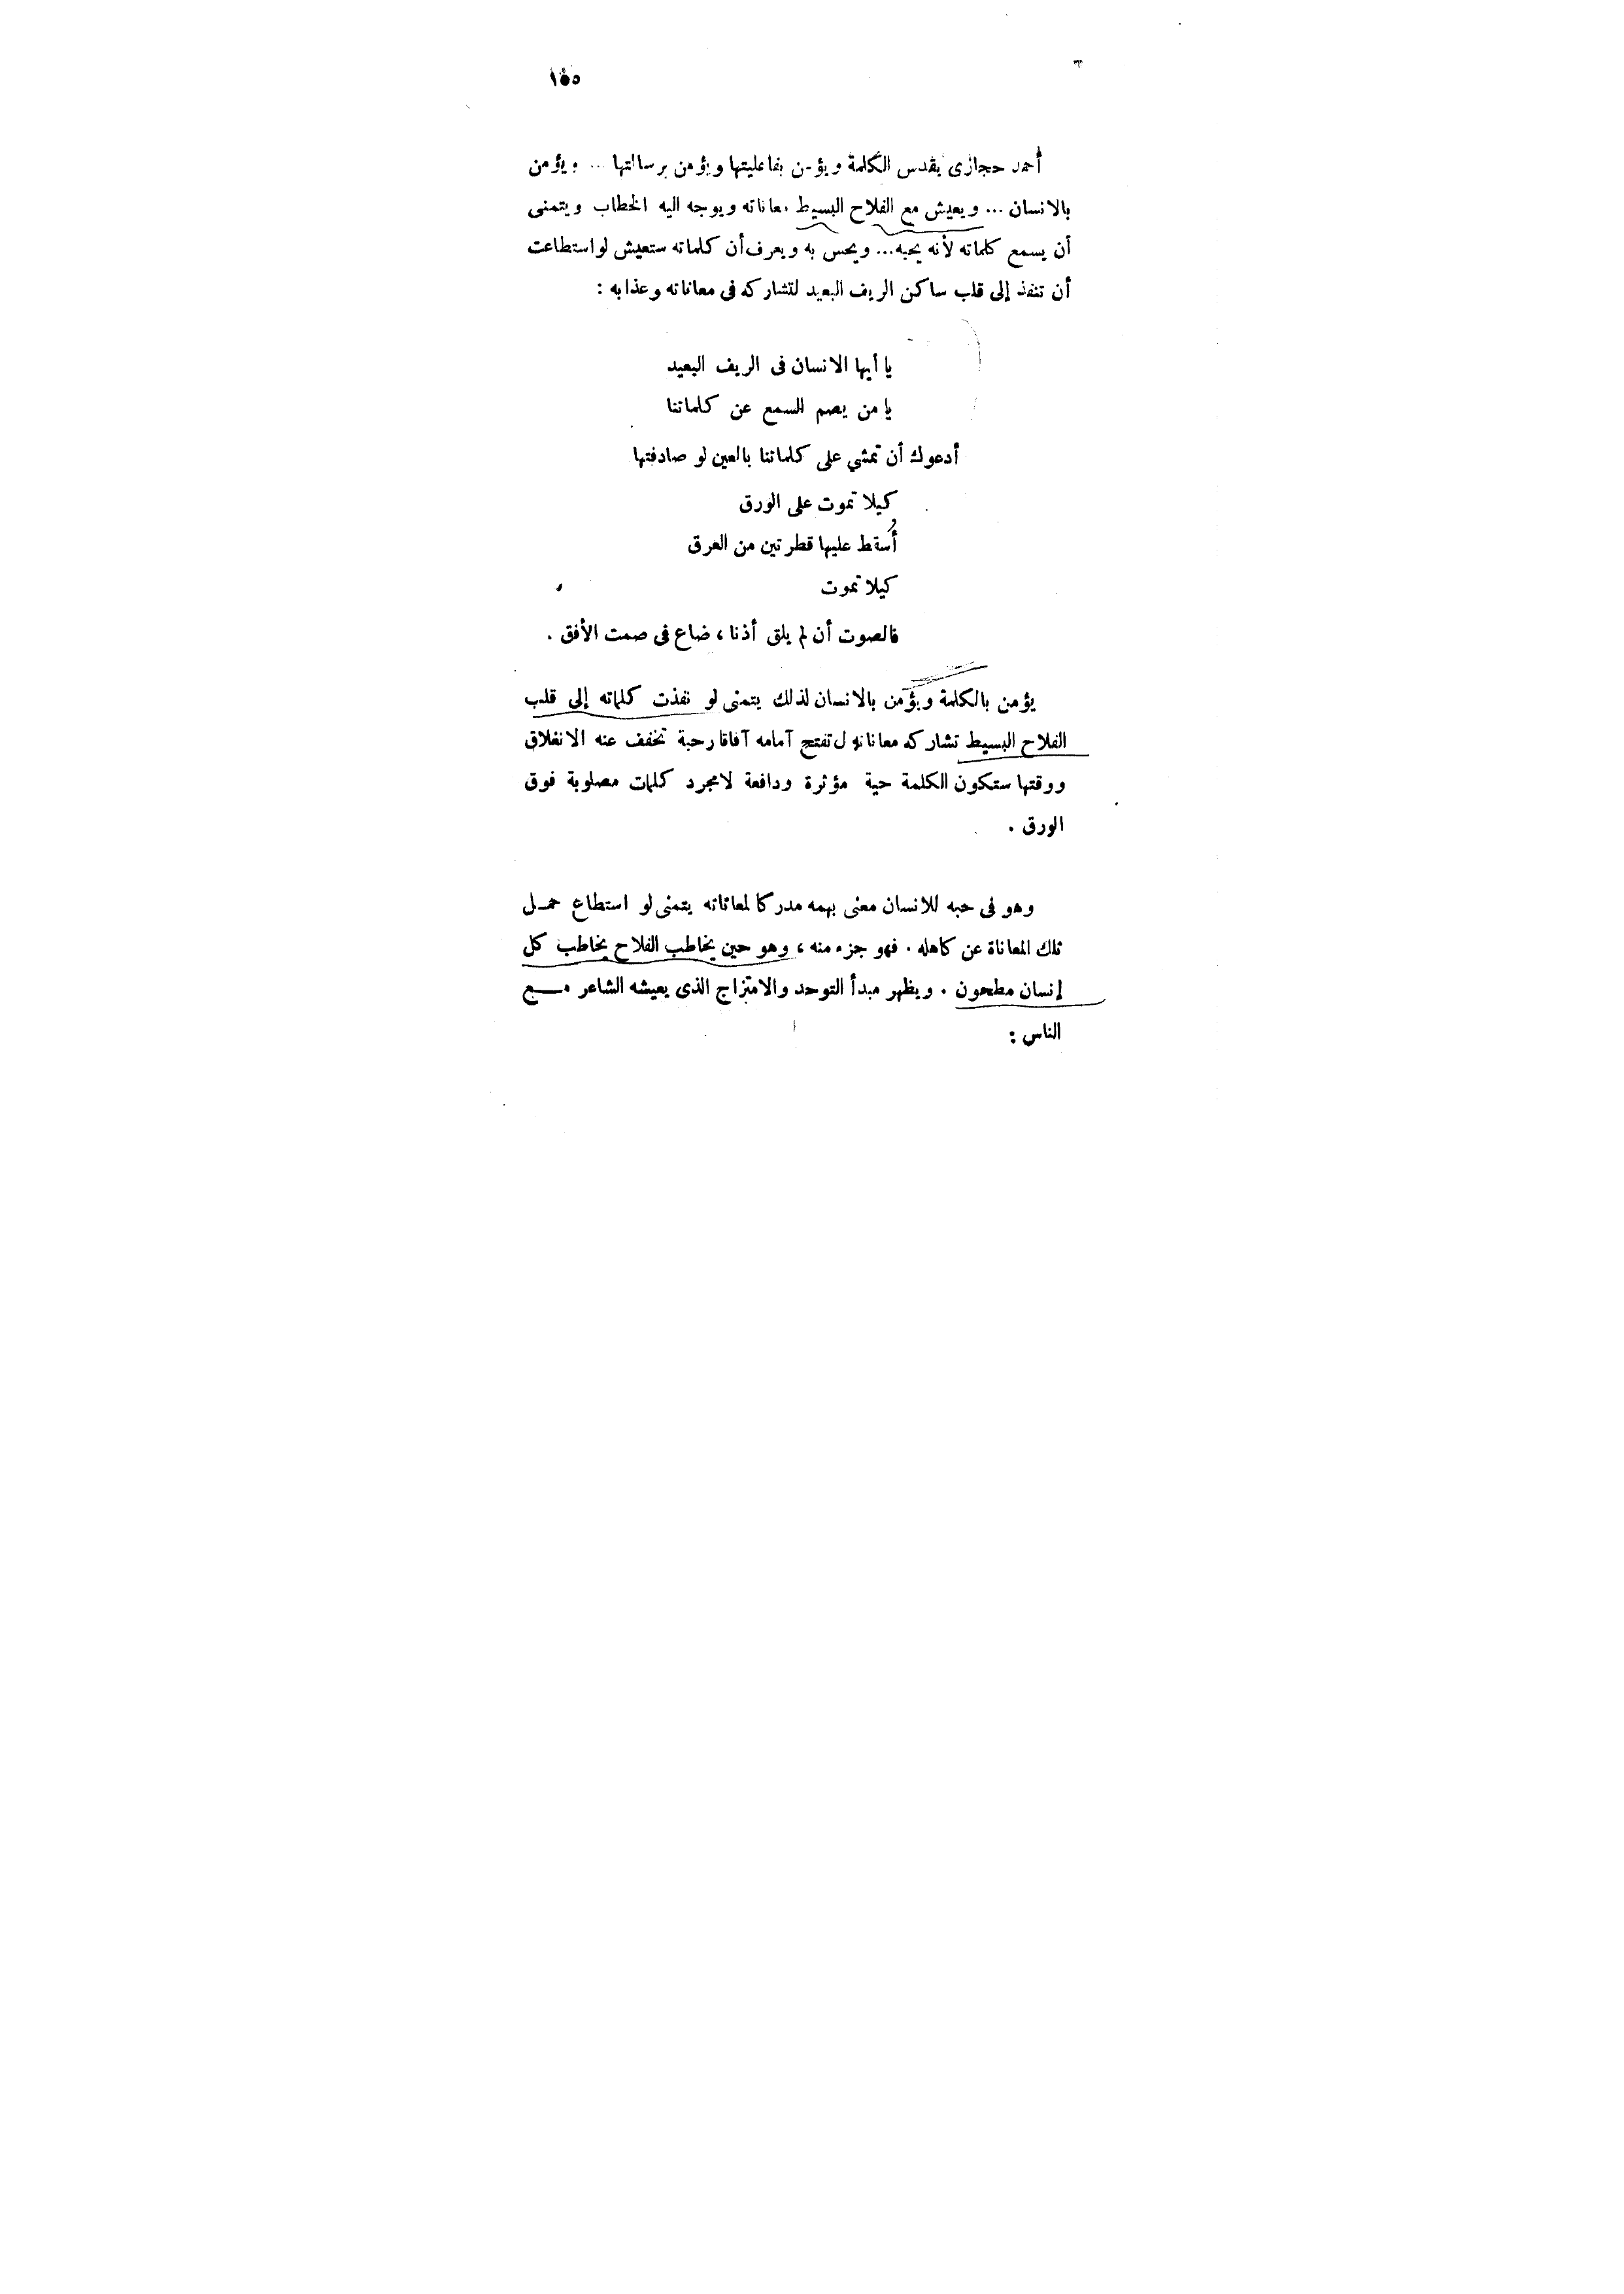 ١٥٥
أحمد حجازى يقدس الكلمة ويؤمن بفاعليتها ويؤمن برسالتها ... ويؤمن
بالانسان ... ويعيش مع الفلاح البسيط معاناته ويوجه اليه الخطاب ويتمنى
أن يسمع كلماته لأنه يحبه... ويحس به ويعرف أن كلماته ستعيش لو استطاعت
أن تنفذ إلى قلب ساكن الريف البعيد لتشاركه فى معاناته وعذابه :
يا أيها الانسان فى الريف البعيد
يا من يصم السمع عن كلماتنا
أدعوك أن تمشي على كلماتنا بالعين لو صادفتها
كيلا تموت على الورق
أسقط عليها قطرتين من العرق
كيلا تموت
فالصوت أن لم يلق أذنا ، ضاع فى صمت الأفق .
يؤمن بالكلمة ويؤمن بالانسان لذلك يتمنى لو نفذت كلماته إلى قلب
الفلاح البسيط تشاركه معاناته ل تفتح آمامه آفاقا رحبة تخفف عنه الانغلاق
ووقتها ستكون الكلمة حية مؤثرة ودافعة لا مجرد كلمات مصلوبة فوق
الورق .
وهو فى حبه للانسان معنى بهمه مدركا لمعاناته يتمنى لو استطاع حمـل
تلك المعاناة عن كاهله . فهو جزء منه ، وهو حين يخاطب الفلاح يخاطب كل
إنسان مطحون . ويظهر مبدأ التوحد والامتزاج الذى يعيشه الشاعر مـــع
الناس :